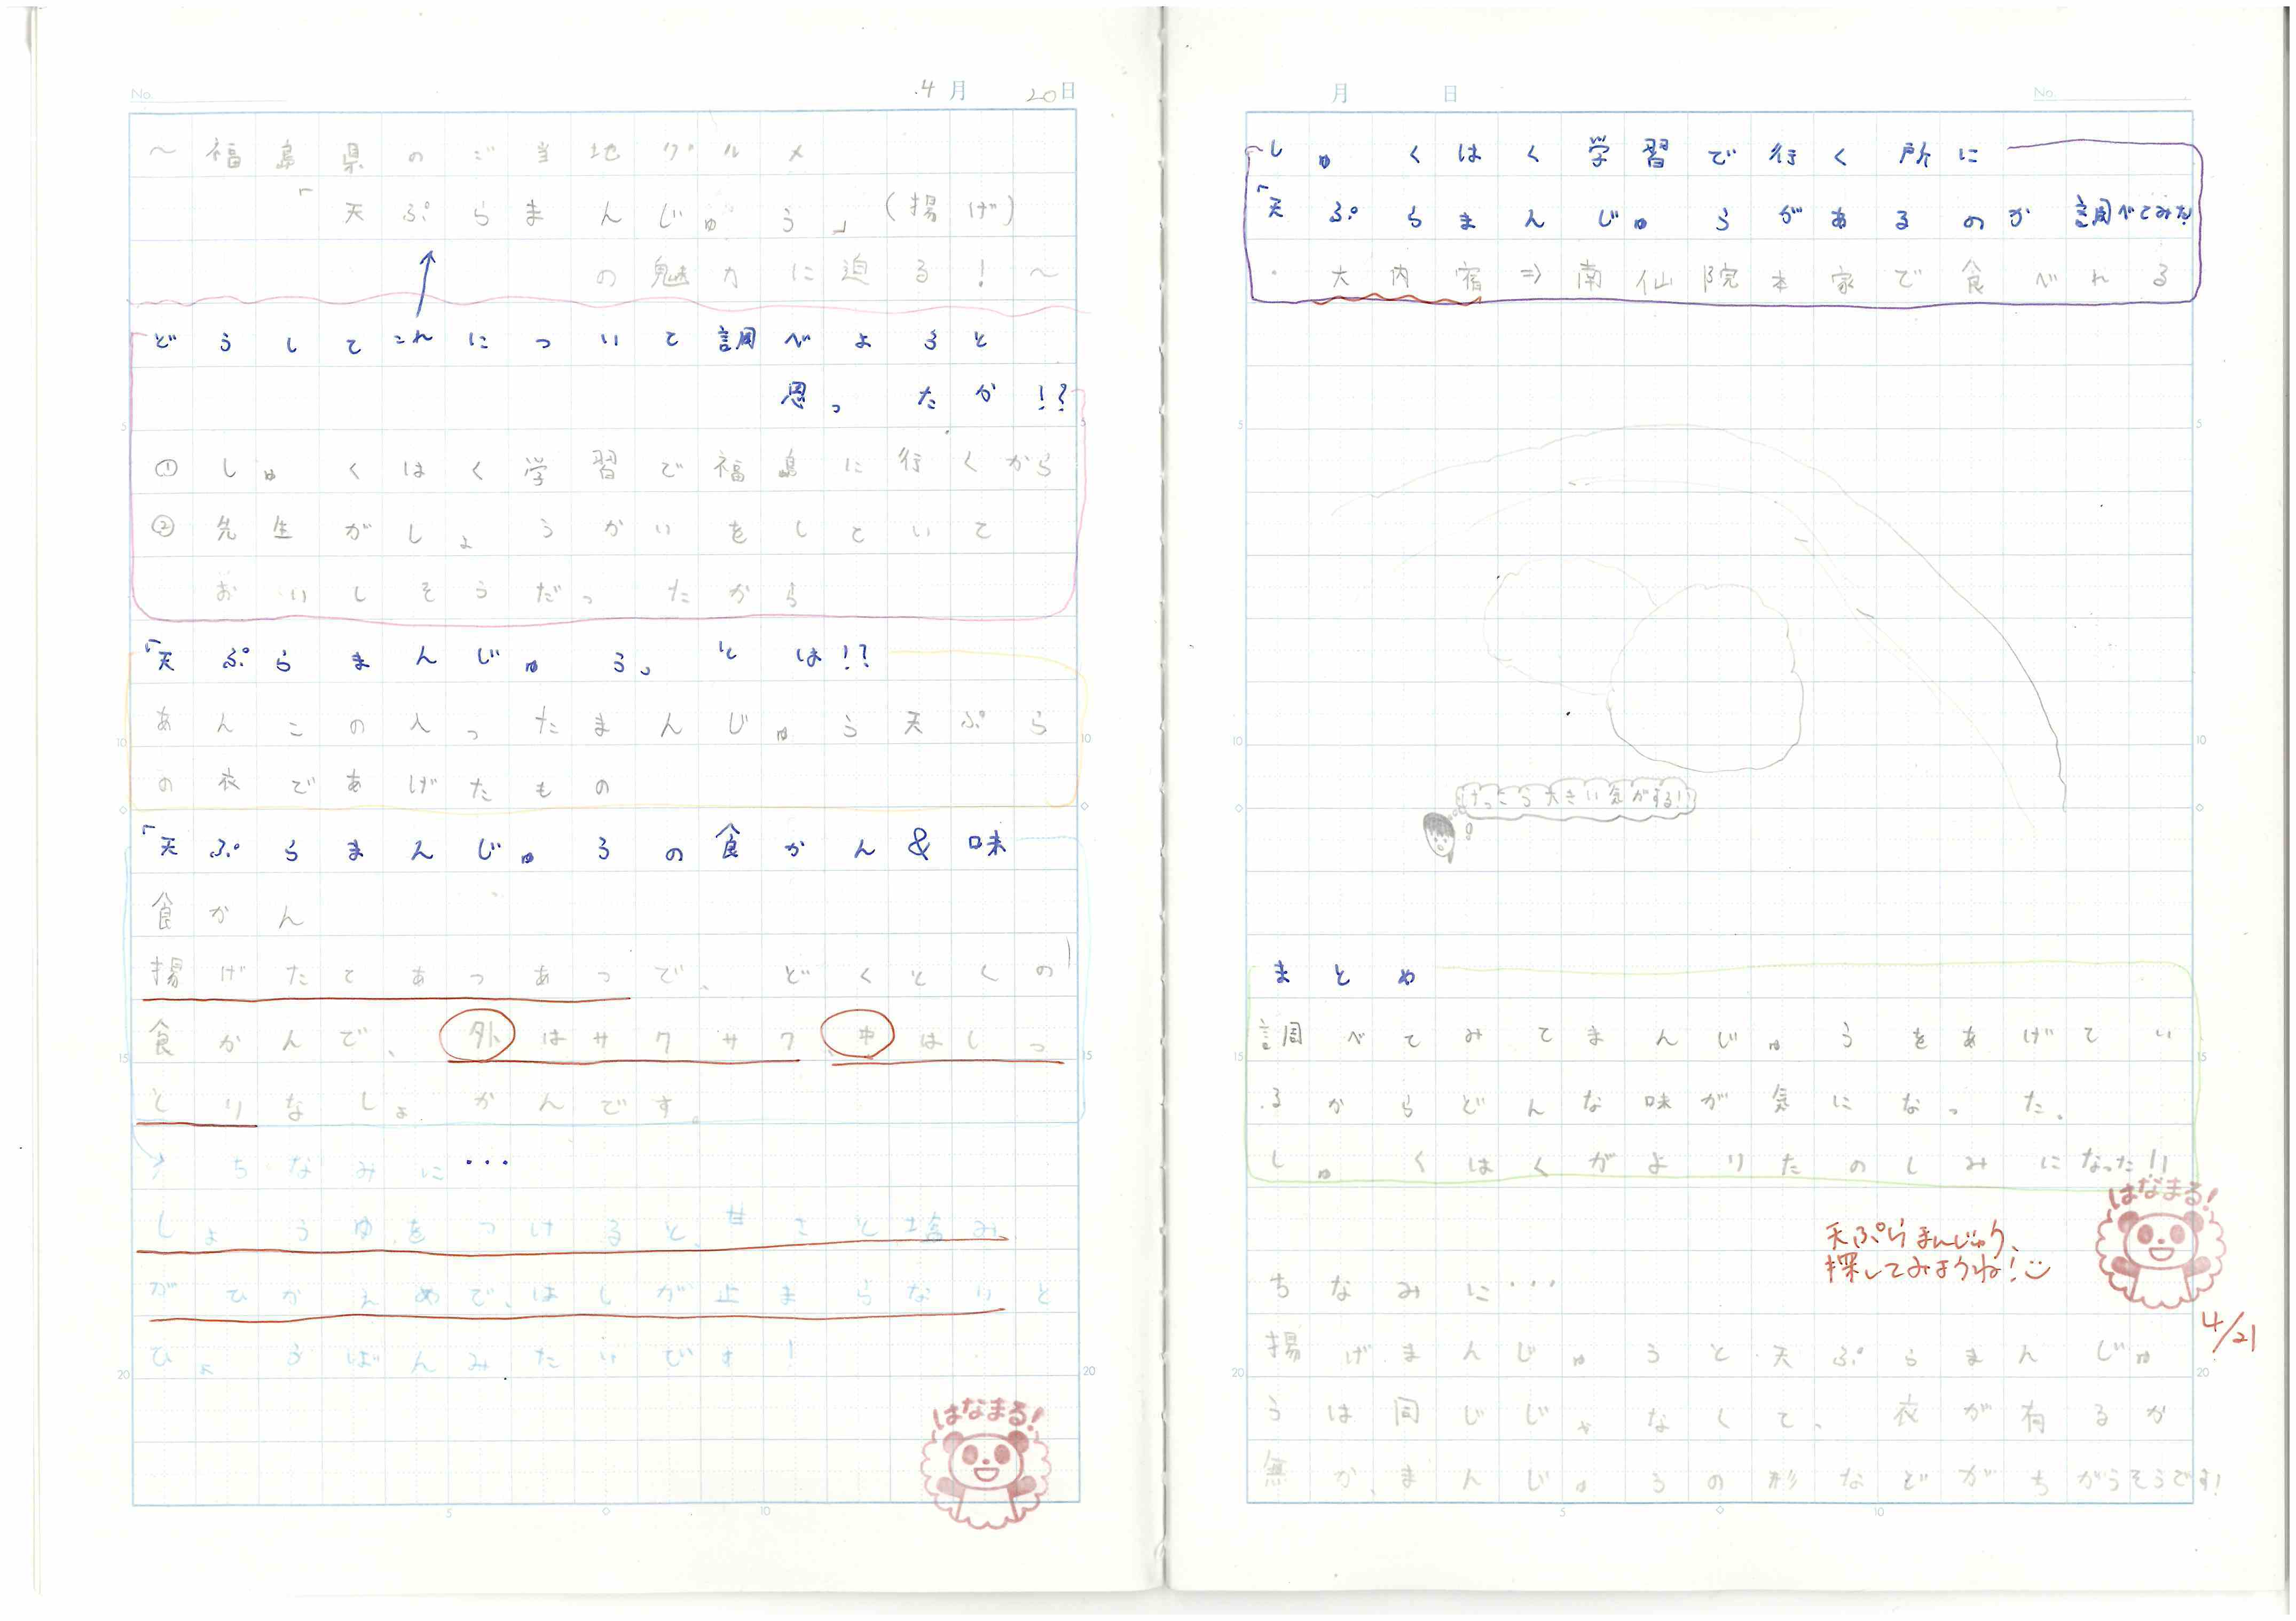 No.
4月 20日
～福島県のご当地グルメ
「天ぷらまんじゅう」(揚げ)
の魅力に迫る!～
どうしてこれについて調べようと
思ったか!?
① しゅくはく学習で福島に行くから
② 先生がしょうかいをしていて
おいしそうだったから
「天ぷらまんじゅう」とは!?
あんこの入ったまんじゅう天ぷら
の衣であげたもの
「天ぷらまんじゅうの食かん&味
食かん
揚げたてあつあつで、どくとくの
食かんで、外はサクサク、中はしっ
とりなしょっかんです。
ちなみに…
しょうゆをつけると、甘さと塩み
がひかえめで、はしが止まらないと
ひょうばんみたいです!
はなまる!
月 日
No.
しゅくはく学習で行く所に
「天ぷらまんじゅうがあるのか調べてみた!
・大内宿⇒南仙院本家で食べれる
けっこう大きい気がする!!
まとめ
調べてみてまんじゅうをあげてい
るからどんな味が気になった。
しゅくはくがよりたのしみになった!!
はなまる!
天ぷらまんじゅう、
探してみようね!
4/21
ちなみに…
揚げまんじゅうと天ぷらまんじゅ
うは同じじゃなくて、衣が有るか
無か、まんじゅうの形などがちがうそうです!